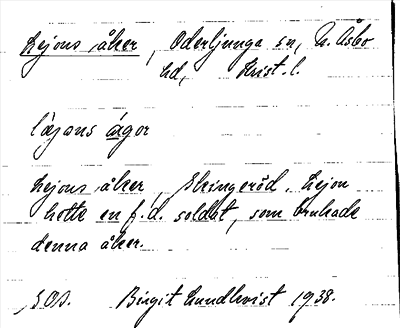 Lejons åker, Oderljunga sn, N. Åsbo
hd, Krist. l.
lajons ågor
Lejons åker, Skingeröd. Lejon
hette en f.d. soldat, som brukade
denna åker.
S.O.D. Birgit Lundkvist 1938.